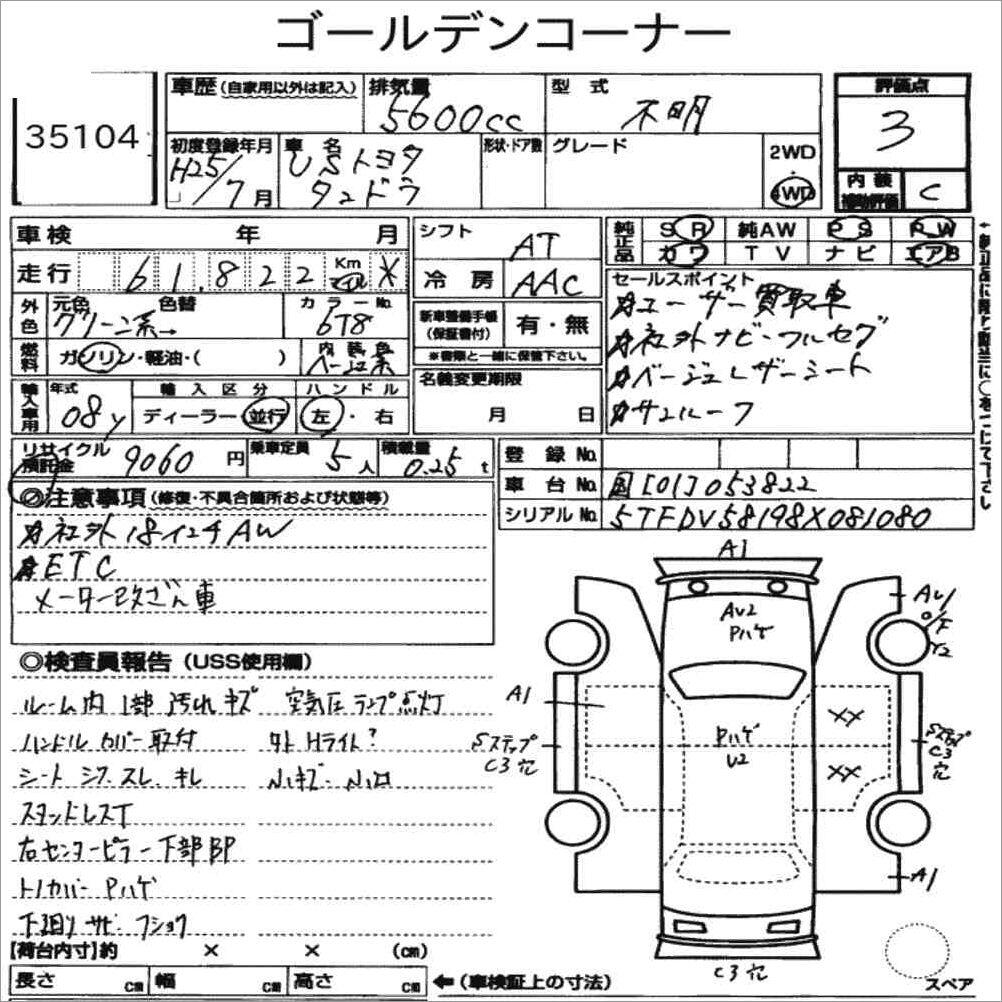 ゴールデンコーナー
35104
車歴 (自家用以外は記入)
排気量
5600cc
型式
不明
評価点
3
初度登録年月
H25/7月
車名
USトヨタ
タンドラ
形状・ドア数
グレード
2WD
4WD
内装
補助評価
C
車検 年 月
走行 61,822 Km マイル *
シフト
AT
冷房
AAC
純正品
SR 純AW PS PW
カワ TV ナビ エアB
外色
元色
グリーン系→
色替
カラーNo.
6T8
燃料
ガソリン・軽油・( )
内装色
ベージュ系
輸入車用
年式
08y
輸入区分
ディーラー・並行
ハンドル
左・右
新車整備手帳
(保証書付)
有・無
※書類と一緒に保管下さい。
名義変更期限
月 日
セールスポイント
ユーザー買取車
社外ナビ・フルセグ
ベージュレザーシート
サンルーフ
リサイクル
預託金 9060円
乗車定員 5人
積載量 0.25t
登録No.
車台No. 国[01]053822
シリアルNo. 5TFDV58198X081080
◎注意事項 (修復・不具合箇所および状態等)
社外18インチAW
ETC
メーター改ざん車
◎検査員報告 (USS使用欄)
ルーム内 1部汚れ キズ 空気圧ランプ点灯
ハンドルカバー取付 外Hライト?
シート シワ.スレ.キレ 小キズ・小凹
スタッドレスT
右センターピラー下部BP
トノカバーPハゲ
下廻り サビ.フショク
A1
AU2
Pハゲ
AU1
Y2
A1
Sステップ
C3穴
Pハゲ
U2
XX
XX
Sステップ
C3穴
A1
C3穴
スペア
【荷台内寸】約 × × (cm)
長さ cm 幅 cm 高さ cm
←(車検証上の寸法)